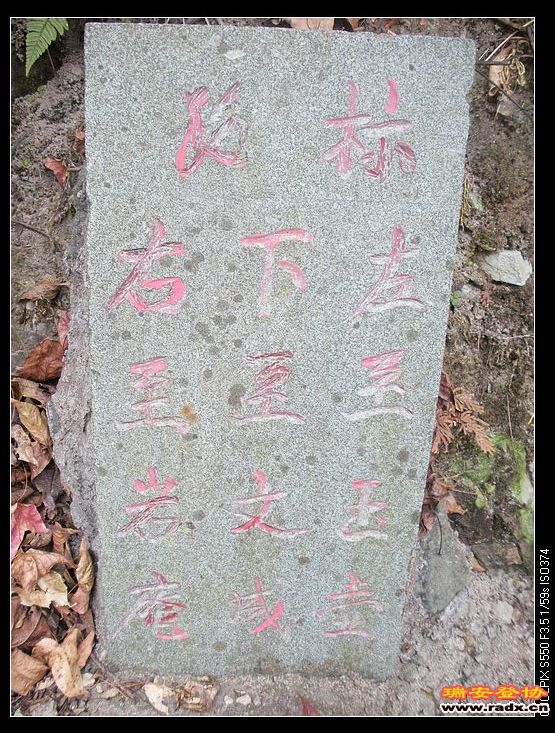 路标
左至玉壶
下至文成
右至岩庵
COOLPIX S550 F3.5 1/59s ISO374
瑞安登协
www.radx.cn